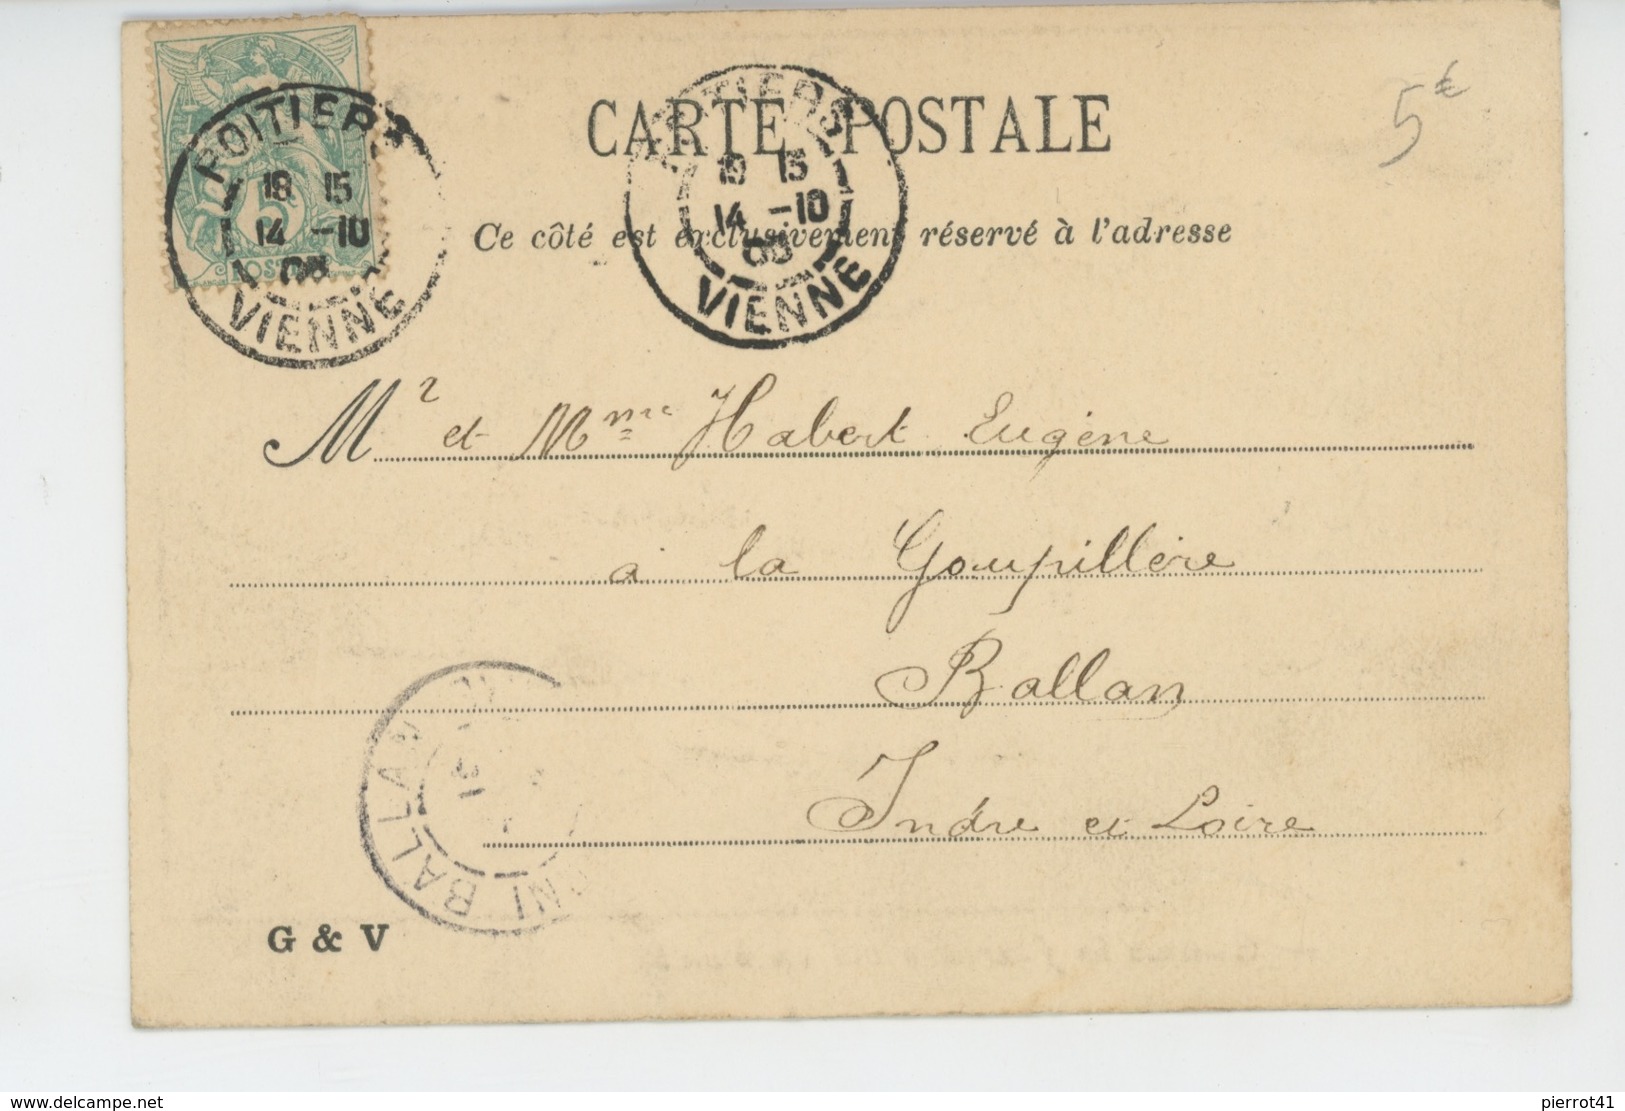 POITIERS
18 15
14 -10
03
VIENNE
5c
POSTES
POITIERS
19 15
14 -10
03
VIENNE
5€
CARTE POSTALE
Ce côté est exclusivement réservé à l'adresse
Mr et Mme Habert Eugène
à la Goupillère
Ballan
Indre et Loire
BALLAN
G & V
www.delcampe.net
pierrot41